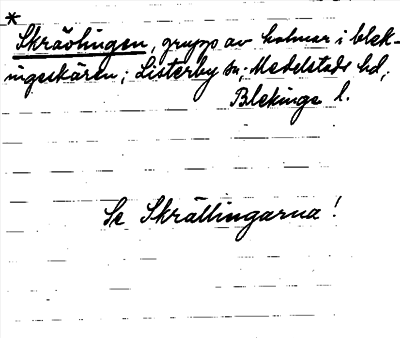 *
Skräolingen, grupp av holmar i blek-
ingeskären; Listerby sn; Medelstads hd,
Blekinge l.
Se Skrällingarna!